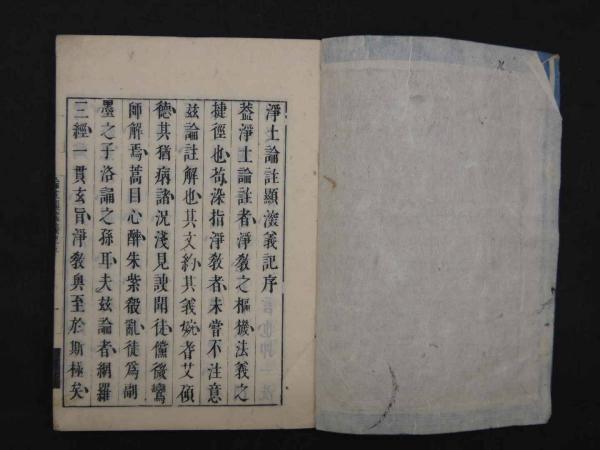 淨土論註顯深義記序
蓋淨土論註者淨教之樞機法義之
捷徑也苟染指淨教者未嘗不注意
茲論註解也其文約其義婉耆艾碩
德其猶病諸況淺見謏聞徒儻後鸞
師解焉蒿目心醉朱紫殽亂徒爲副
墨之子洛誦之孫耳夫茲論者網羅
三經一貫玄旨淨教奧至於斯極矣